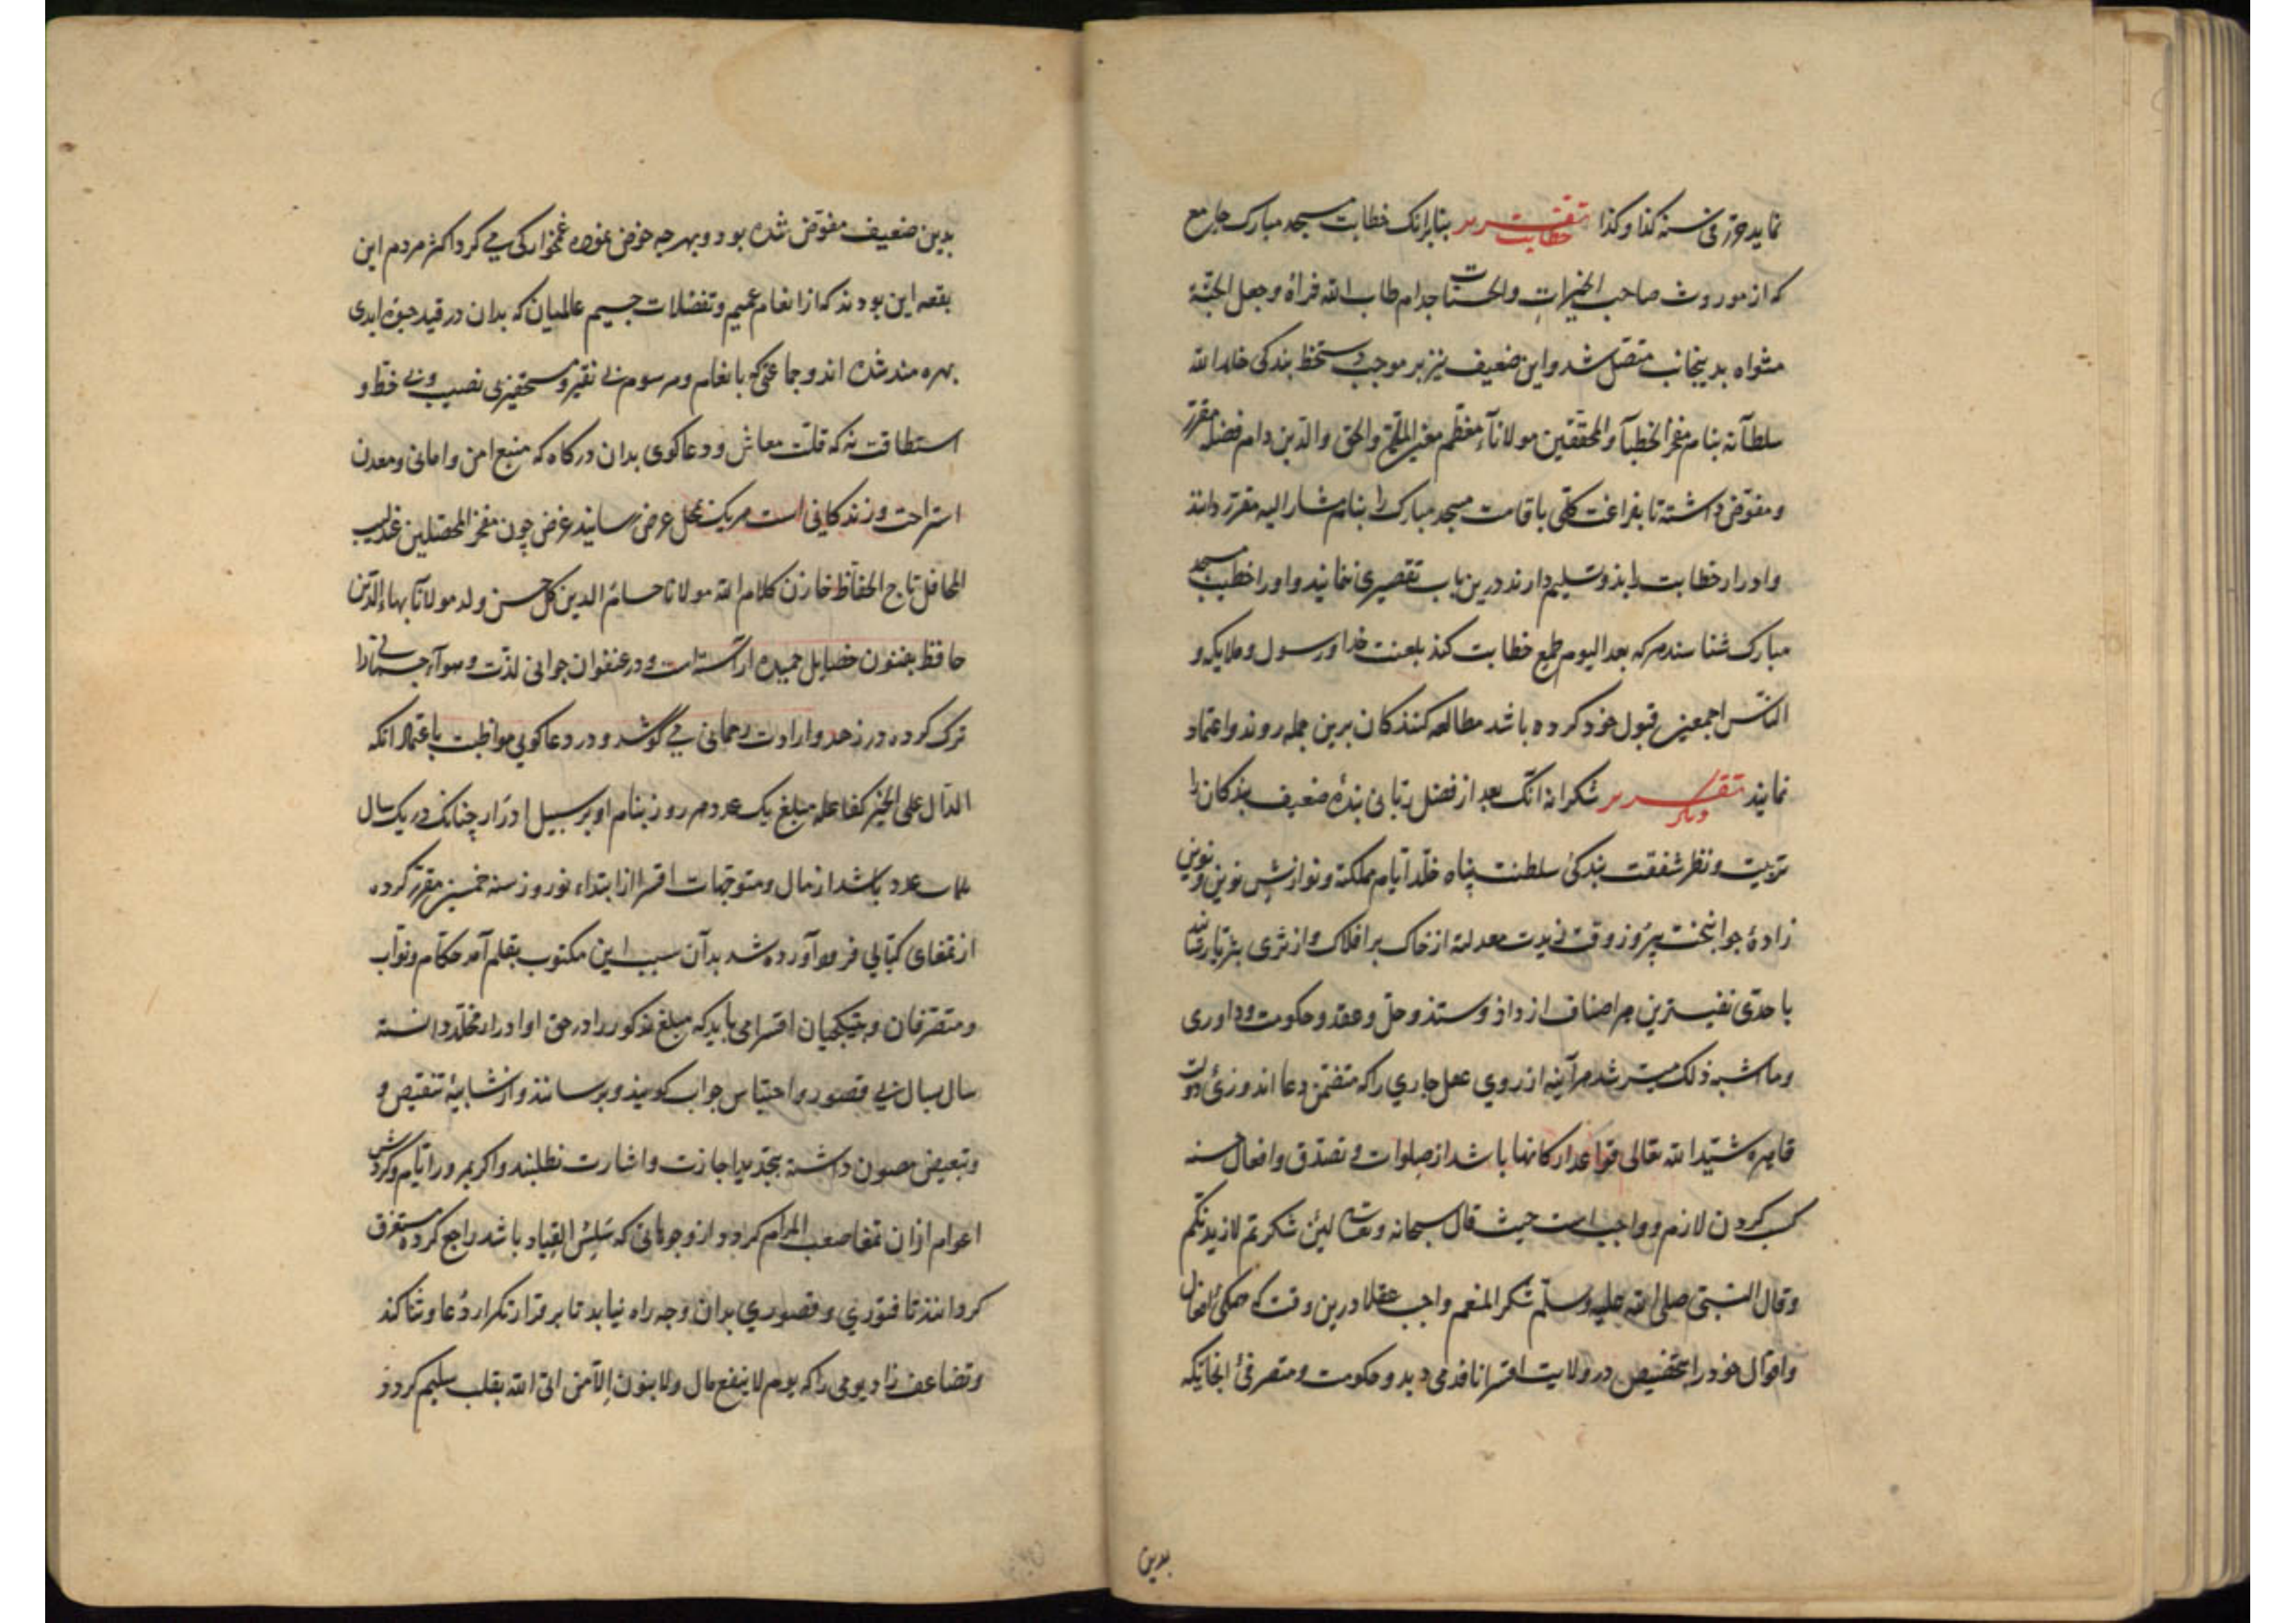 نماید حرّر فی سنه کذا وکذا تقریر خطابت بنابرانک خطابت مسجد مبارک جامع
که از موروث صاحب الخیرات والحسنات جدام طاب الله ثراه وجعل الجنّة
مثواه بدینجانب متصل شد واین ضعیف نیز بر موجب دستخط بندکی خلد الله
سلطانه بنام مفخر الخطبآ والمحققین مولانآء معظم الملّة والحق والدین دام فضله مقرر
ومفوّض داشته تا بفراغت کلّی باقامت مسجد مبارک را بنام مشار الیه مقرر دانند
وادرار خطابت بدو تسلیم دارند درین باب تقصیری ننمایند واورا خطیب مسجد
مبارک شناسند هرکه بعد الیوم طمع خطابت کند بلعنت خدا ورسول وملایکه و
النّاس اجمعین قبول خود کرده باشد مطالعه کنندکان برین جمله روند واعتماد
نمایند تقریر دیکر شکرانه آنک بعد از فضل ربّانی بندۀ ضعیف بندکان را
تربیت ونظر شفقت بندکئ سلطنت پناه خلّد ایام مملکته ونوازش نوین ونوین
زادۀ جوانبخت پیروز وقت زیدت معدلته از خاک بر افلاک واز ثری بثریّا رسانید
با حدّی نفیسترین هر اصناف از داذ وستذ وحلّ وعقد وحکومت وداوری
وما اشبه ذلک میسر شد هرآینه از روی عقل جاری را که متضمّن دعا اندوزئ دولت
قاهره شیّد الله تعالی قواعد ارکانها باشد از صلوات و تصدّق وافعال حسنه
کسب کردن لازم و واجبست حیث قال سبحانه وتعالی لئن شکرتم لازیدنکم
وقال النّبی صلی الله علیه وسلّم شکر المنعم واجب عقلا درین وقت که همکئ افعال
واقوال خود را بتخصیص در ولایت اقسرا نافذ می دید وحکومت ومتصرفئ انجایکه
بدین
بدین ضعیف مفوّض شده بود وبهرجه خوض نموده غمخوارکی می کرد اکثر مردم این
بقعه این بودند که از انعام عمیم وتفضلات جسیم عالمیان که بدان در قید حیوة ابدی
بهره مند شده اند وجماعتی که بانعام ومرسوم نی نقیر ومستحقیزی نصیب ونی حظ و
استطاقت نه که قلّت معاش ودعاکوی بدان درکاه که منبع امن وامانی ومعدن
استراحت وزندکانی است هریک بمحل عرض رسانید غرض چون مفخر المحصلین عندلیب
المحافل تاج الحفّاظ خازن کلام الله مولانا حسام الدین کل حسن ولد مولانا بهاء الدّین
حافظ بفنون خصایل حمیده اراسته است ودر عنفوان جوانی لذّت وهوآء جسمانی را
ترک کرده در زهد وارادت رحمانی می کوشد ودر دعاکویی مواظبت باعتماد انکه
الدّال علی الخیر کفاعله مبلغ یک عدد هر روز بنام او بر سبیل ادرار چنانک در یک سال
عدد باشد از مال ومتوجّهات اقسرا از ابتداء نوروز سنه خمسین مقرر کرده
از تمغای کپّالی فروآورده شد بدآن سبب این مکتوب بقلم آمد حکّام ونوّاب
ومتصّرفان وبیتکجیان اقسرا می باید که مبلغ مذکور را در حق او ادرار مخلّد دانسته
سال بسال بی قصور واحتباس جواب کویند وبرسانند واز شایبۀ تنقیص و
وتبعیض مصون داشته بتجدید اجازت واشارت نطلبند واکر بمرور ایّام وکردش
اعوام ازان تمغا صعب المرام کردد از وجوهاتی که سَلِسُ القیاد باشد راجع کرده مستغرق
کردانند تا فتوری وقصوری بدان وجه راه نیابد تا بر قرار تکرار دُعا وثنا کند
وتضاعف زاد یومی را که یوم لا ینفع مال ولا بنون الّا من اتی الله بقلب سلیم کردد